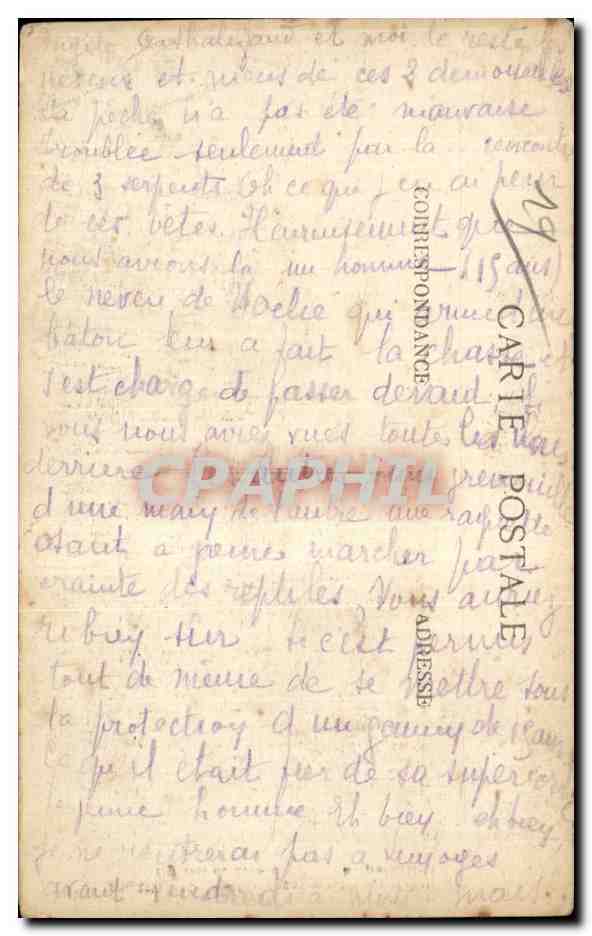 et moi le reste
neveux et nièces de ces 2 demoiselles
La pêche n'a pas été mauvaise
troublée seulement par la rencontre
de 3 serpents Oh ce que j'en ai peur
de ces bêtes. Heureusement que
nous avions là un homme - (15 ans)
le neveu de qui armé d'un
bâton leur a fait la chasse et
s'est chargé de passer devant. Si
vous nous aviez vues toutes les
derrière
d'une main de l'autre une raquette
osant à peine marcher par
crainte des reptiles, Vous auriez
ri bien sur si c'est permis
tout de même de se mettre sous
la protection d'un gamin de 15 ans
Ce qu'il était fier de sa
le jeune homme. Eh bien, eh bien,
je ne rentrerai pas à
avant vendredi à mais
CARTE POSTALE
CORRESPONDANCE
ADRESSE
19
CPAPHIL